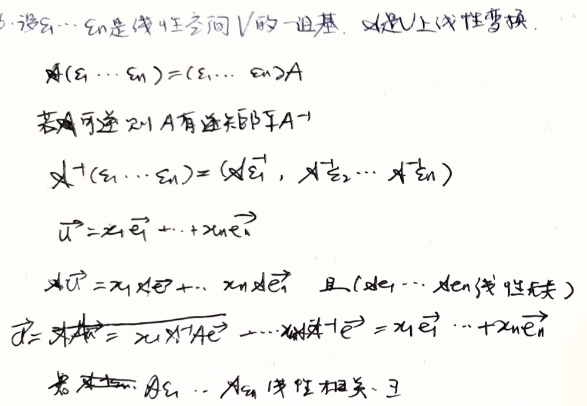 设ε₁…εn是线性空间V的一组基. 𝒜是V上线性变换.
𝒜(ε₁…εn)=(ε₁…εn)A
若𝒜可逆则A有逆矩阵A⁻¹
𝒜⁻¹(ε₁…εn)=(𝒜⁻¹ε₁, 𝒜⁻¹ε₂…𝒜⁻¹εn)
u⃗=x₁e₁⃗+…+xnen⃗
𝒜u⃗=x₁𝒜e⃗+…xn𝒜en⃗ 且(𝒜e₁…𝒜en线性无关)
= x₁𝒜⁻¹Ae⃗ …𝒜⁻¹e⃗=x₁e₁⃗…+xnen⃗
若 Aε₁…Aεn线性相关、∃